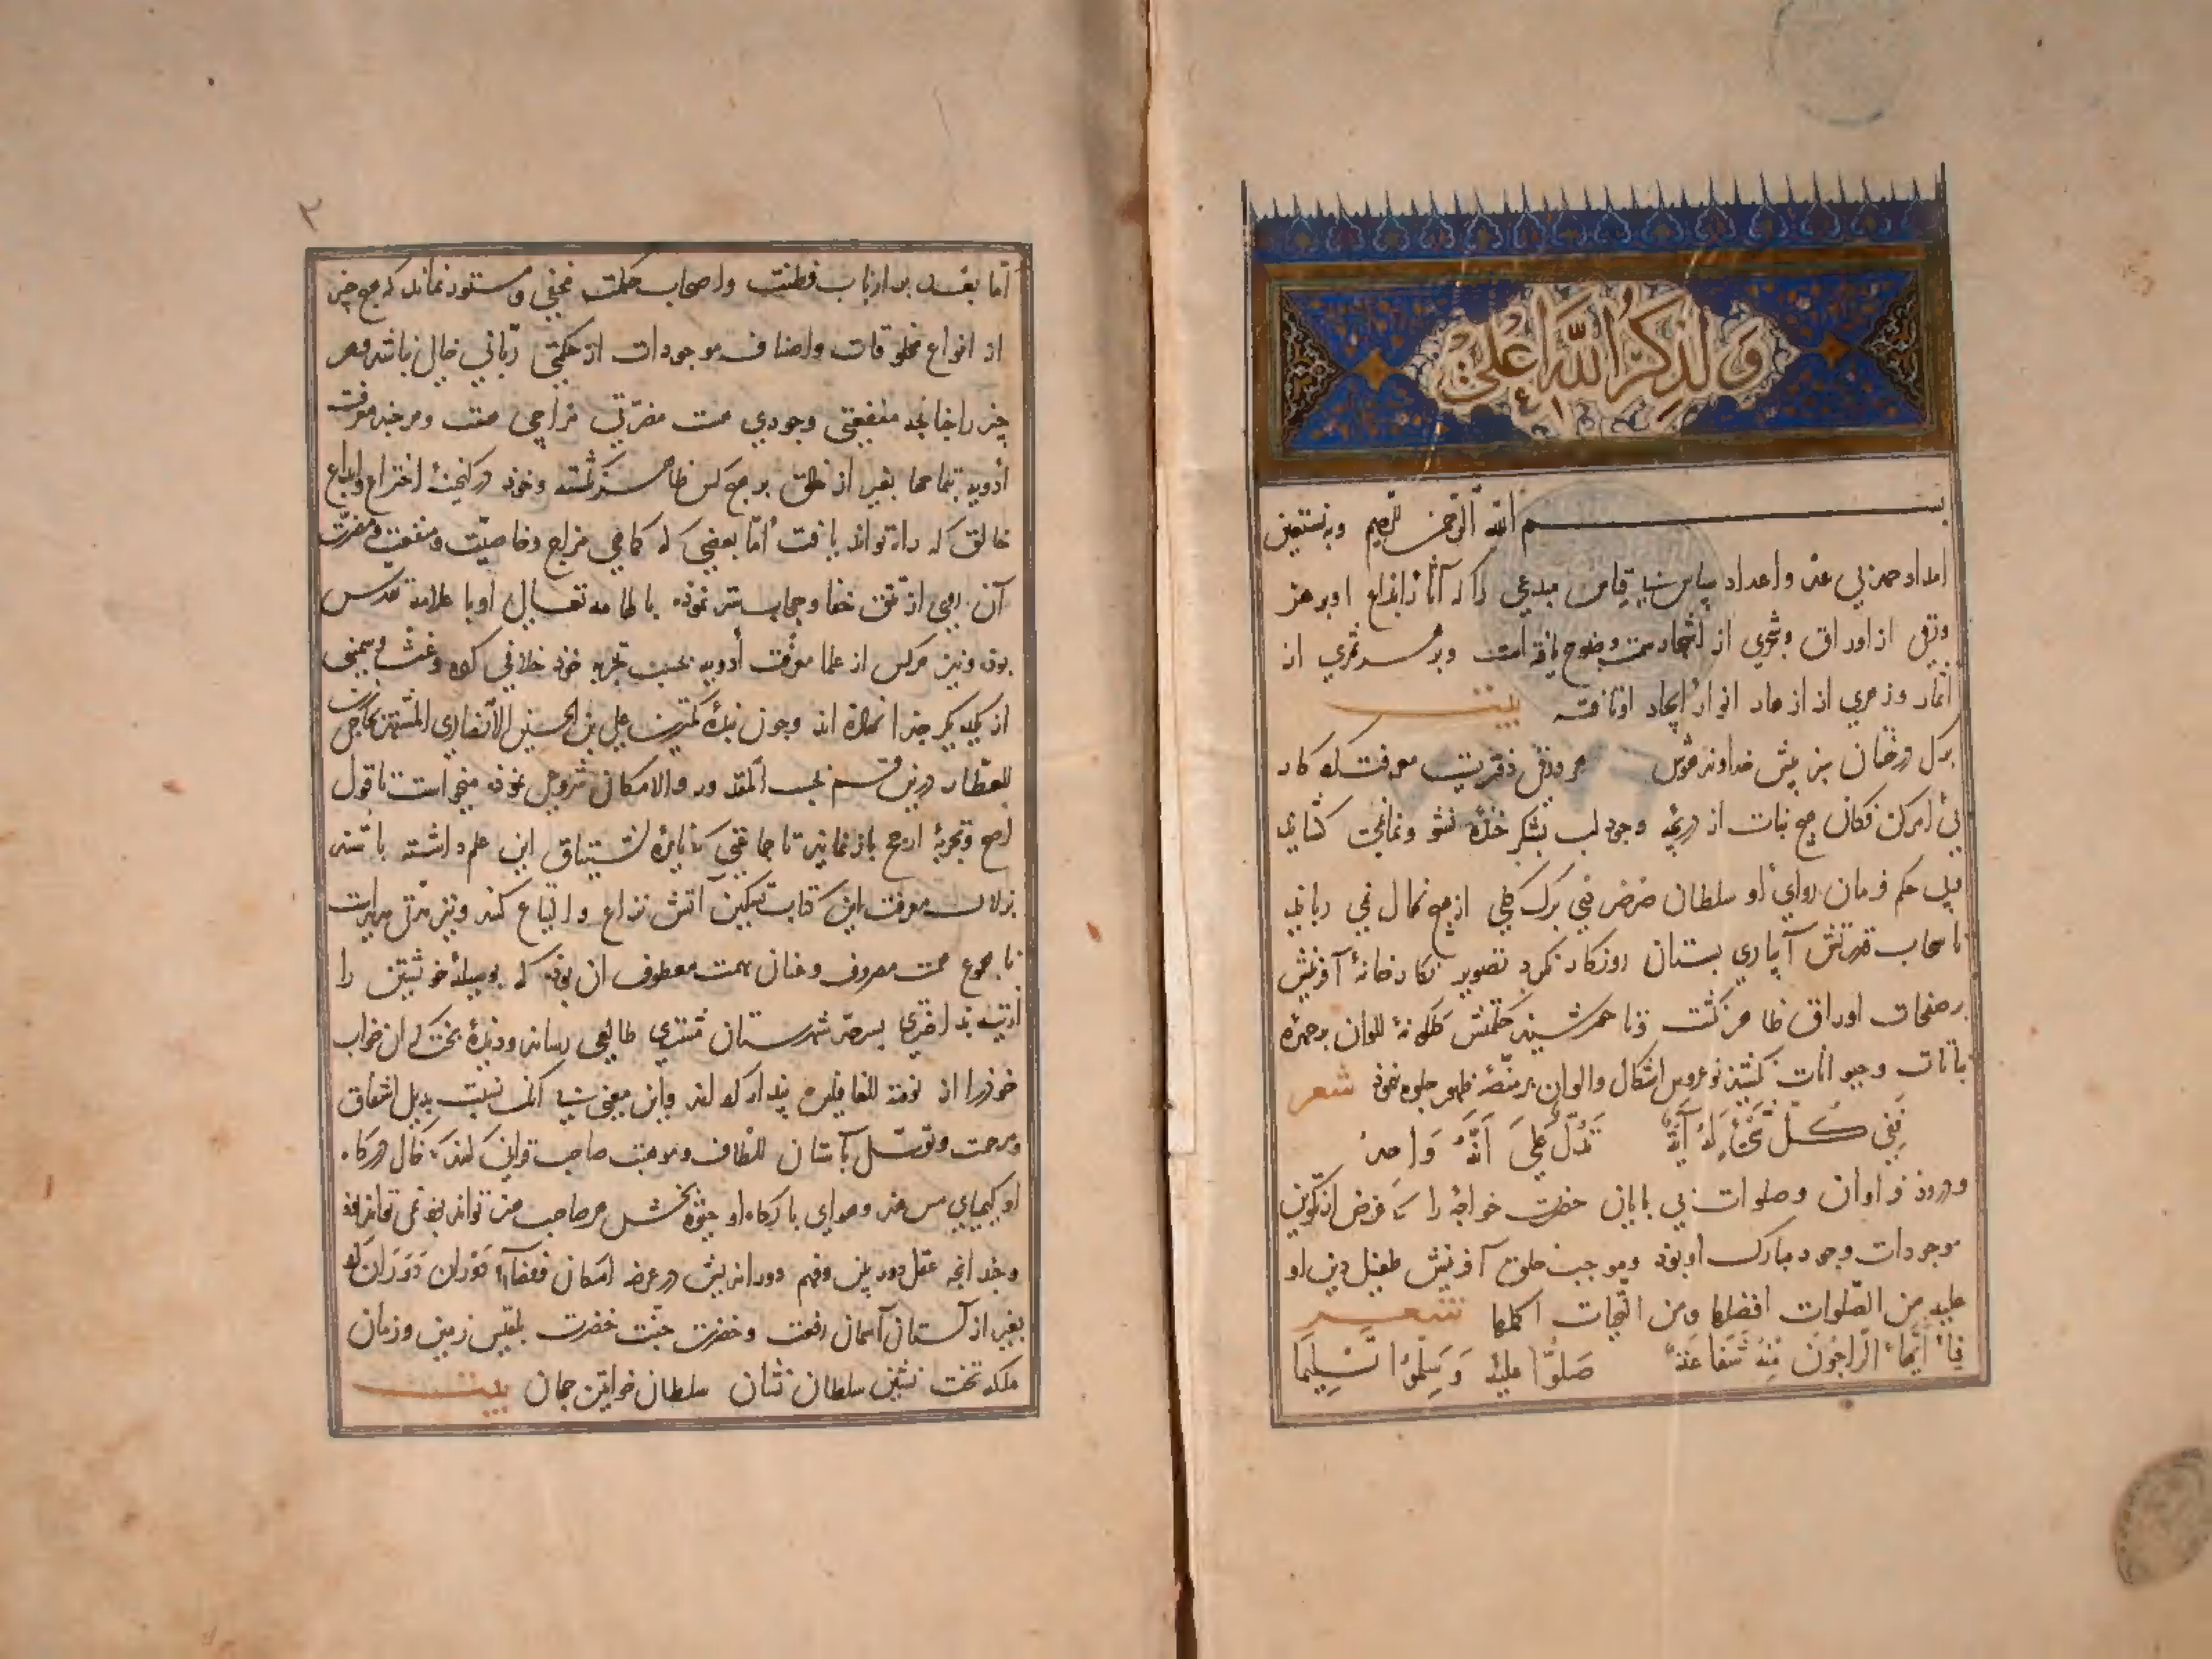 ولذكر الله أعلى
بسم الله الرحمن الرحيم وبه نستعين
امداد حمد بی عد واعداد سپاس بی قیاس مبدعی را که آثار ابداع او بر هر
ورقی از اوراق وشجری از اشجار سمت وضوح یافته است وبر هر ثمری از
اثمار وزهری از ازهار انوار ایجاد او تافته بیت
برک درختان سبز پیش خداوند هوش هر ورقی دفتریست معرفت کردکار
بی امر کن فکان هیچ نبات از دریچه وجود لب بشکر خنده نشو ونما نمی کشاید
وبی حکم فرمان روای او سلطان خرض نی برک کلی از هیچ نهال نمی رباید
تا سحاب قدرتش آبیاری بستان روزکار نکرد تصویر نکارخانه آفرینش
بر صفحات اوراق ظاهر نکشت وتا حکمتش کلکونه الوان بر چهره
نباتات وحیوانات نکشید نوعروس اشکال والوان بر منصه ظهور جلوه ننمود شعر
ففي كل شيء له آية تدل على أنه واحد
ودرود فراوان وصلوات بی پایان حضرت خواجه را که غرض از تکوین
موجودات وجود مبارک او بود وموجب خلق آفرینش طفیل دین او
علیه من الصلوات افضلها ومن التحیات اکملها شعر
يا أيها الراجون منه شفاعة صلوا عليه وسلموا تسليما
٢
اما بعد بر ارباب فطنت واصحاب حکمت مخفی ومستور نماند که هیچ چیز
از انواع مخلوقات واصناف موجودات از حکمتی ربانی خالی نباشد وهر
چیز را چنانچه منفعتی وجودی هست مضرتی مزاجی هست وهر چند معرفت
أدویه بتمامها بغیر از خالق بر هیچ کس ظاهر نکشته وخود در کنجینه اختراع وابداع
خالق که راه تواند یافت اما بعضی که کماهی مزاج وخاصیت ومنفعت ومضرت
آن روی از تتق خفا وحجاب ستر نموده یا بالهامه تعالی او با علامه تقدس
بوده ونیز هر کس از علما معرفت أدویه بحسب تجربه خود خلافی کرده وغث وسمین
از یکدیکر جدا نکرده اند وچون بنده کمترین علی بن الحسین الأنصاری المشتهر بحاجی زین
العطار درین قسم بحسب المقدور والامکان شروعی نموده میخواست تا قول
اصح وتجربه ارجح باز نماید تا جماعتی که نایره اشتیاق این علم داشته باشند
بزلال معرفت این کتاب تسکین آتش نزاع والتیاع کنند ونیز مدتی مدید است
تا مجموع همت مصروف وعنان نهمت معطوف ان بود که بوسیله خویشتن را
بسرحد شهرستان مشتری طالعی رساند ودیده بخت کران خواب
خودرا از نومة الغافلین بیدار کرداند واین معنی بی انک نسبت بدیل اشفاق
ومرحمت وتوسل بآستان الطاف وموهبت صاحب قرانی کند که خاک درکاه
او کیمیای مس هنر وهوای بارکاه او بخش هر صاحب هنر تواند بود نمی تواند بود
وچندانچه عقل دوربین وفهم دوراندیش در عرصه امکان وفضای دوران دوران کرد
بغیر از آستان آسمان رفعت وحضرت جنت خضرت بلقیس زمین وزمان
ملکه تخت نشین سلطان نشان سلطان خواتین جهان بیت